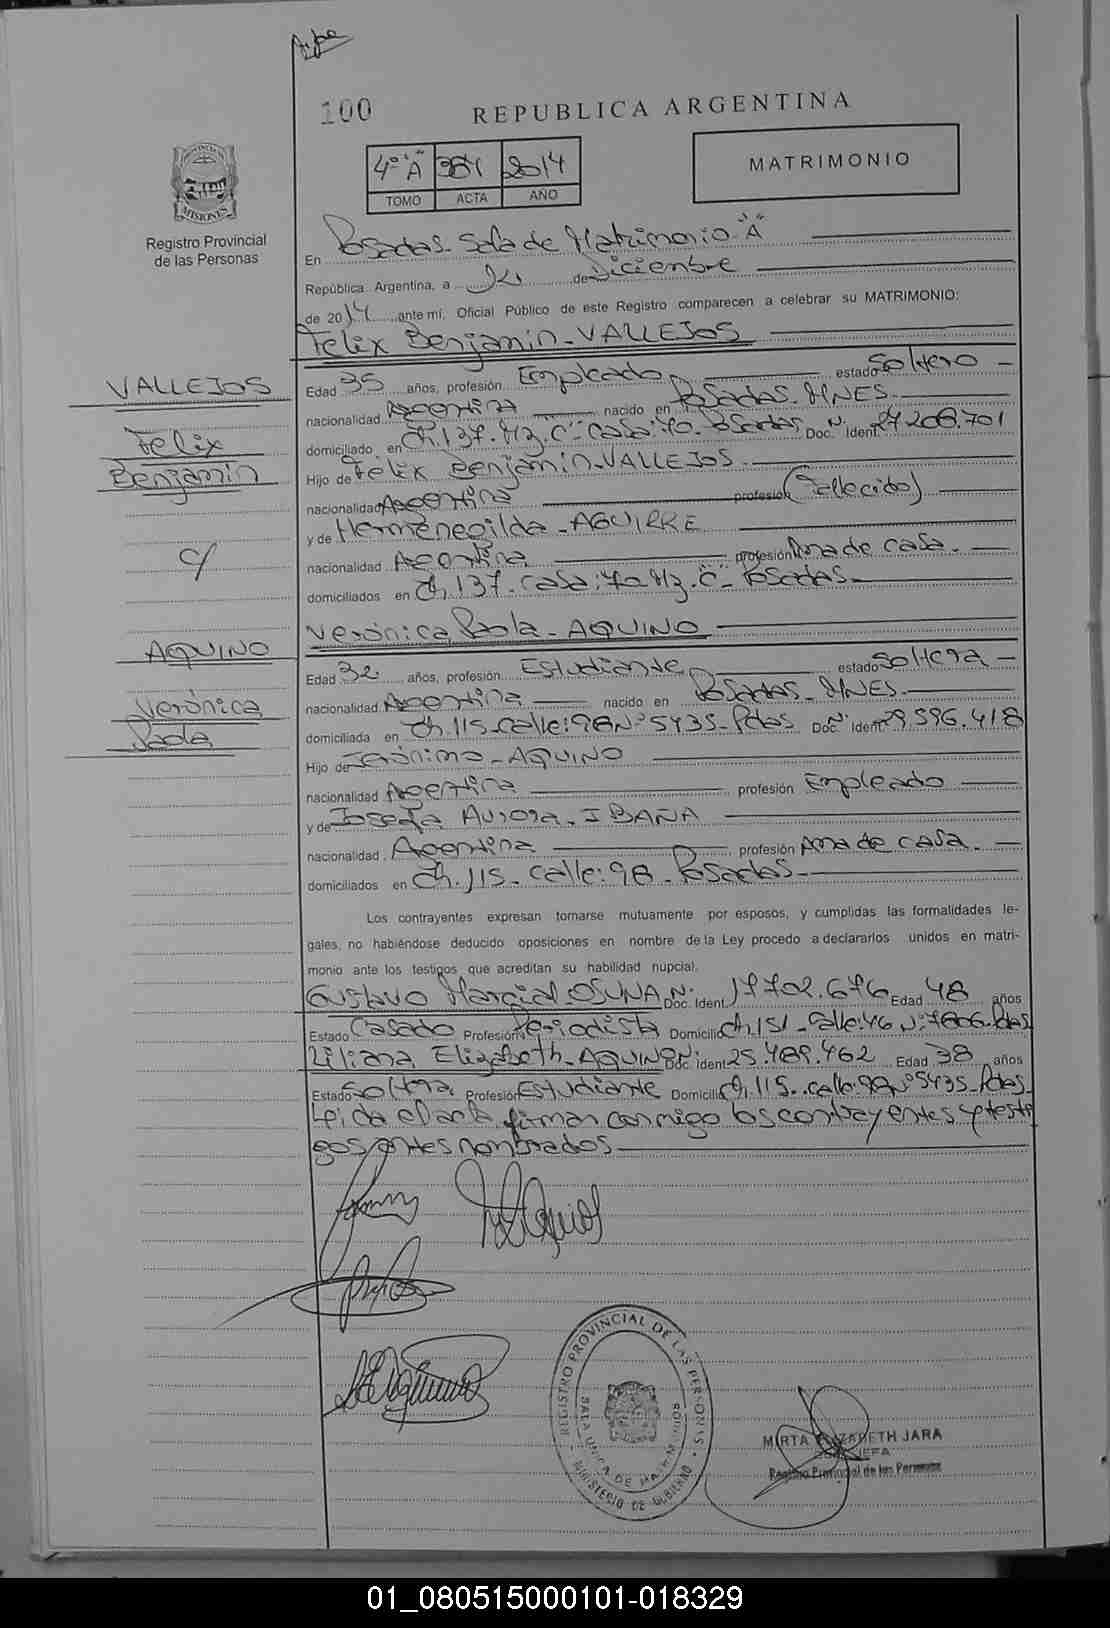 100
REPUBLICA ARGENTINA
4º "A" 384 2014
TOMO ACTA AÑO
MATRIMONIO
Registro Provincial
de las Personas
En Posadas - Sala de Matrimonio - "A"
República Argentina, a de Diciembre
de 2014 ante mí, Oficial Público de este Registro comparecen a celebrar su MATRIMONIO:
Felix Benjamin - VALLEJOS
VALLEJOS
Felix
Benjamin
c/
AQUINO
Verónica
Paola
Edad 35 años, profesión Empleado estado Soltero -
nacionalidad Argentina nacido en Posadas - MNES.
domiciliado en Ch. 137. Mz. C - casa: 70. Posadas Doc. Nº Ident. 27.208.701
Hijo de Felix Benjamin - VALLEJOS
nacionalidad Argentina profesión (Fallecido)
y de Hermenegilda - AGUIRRE
nacionalidad Argentina profesión Ama de casa. -
domiciliados en Ch. 137. casa: 70 Mz. C - Posadas -
Verónica Paola - AQUINO
Edad 32 años, profesión Estudiante estado Soltera -
nacionalidad Argentina nacido en Posadas - MNES.
domiciliada en Ch. 115 - calle: 98 Nº 5435 - Pdas Doc. Nº Ident. 29.596.418
Hijo de Jerónimo - AQUINO
nacionalidad Argentina profesión Empleado
y de Josefa Aurora - IBAÑA
nacionalidad Argentina profesión Ama de casa. -
domiciliados en Ch. 115 - calle: 98 - Posadas -
Los contrayentes expresan tomarse mutuamente por esposos, y cumplidas las formalidades le-
gales, no habiéndose deducido oposiciones en nombre de la Ley procedo a declararlos unidos en matri-
monio ante los testigos que acreditan su habilidad nupcial.
Gustavo Marcial - OSUNA Nº Doc. Ident. 17.702.676 Edad 48 años
Estado Casado Profesión Periodista Domicilio Ch. 151 - Calle: 46 Nº: 7606 - Pdas
Liliana Elizabeth - AQUINO Nº Doc. Ident 25.489.462 Edad 38 años
Estado Soltera Profesión Estudiante Domicilio Ch. 115.. calle: 98 Nº 5435 - Pdas.
Leida el acta firman conmigo los contrayentes y testi
gos antes nombrados
REGISTRO PROVINCIAL DE LAS PERSONAS
SALA UNICA DE MATRIMONIOS
MINISTERIO DE GOBIERNO
MIRTA ELIZABETH JARA
JEFA
Registro Provincial de las Personas
MISIONES
01_080515000101-018329